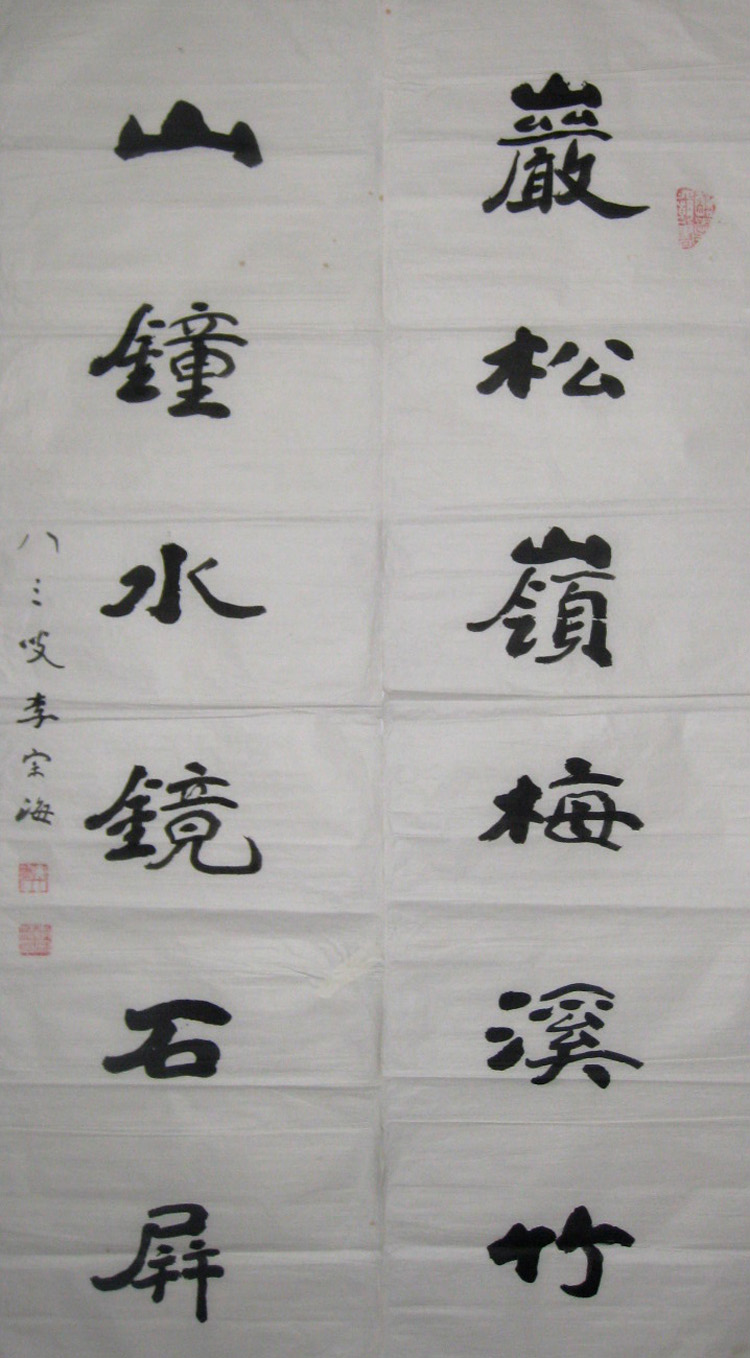 巖松嶺梅溪竹
山鐘水鏡石屏
八三叟李宗海